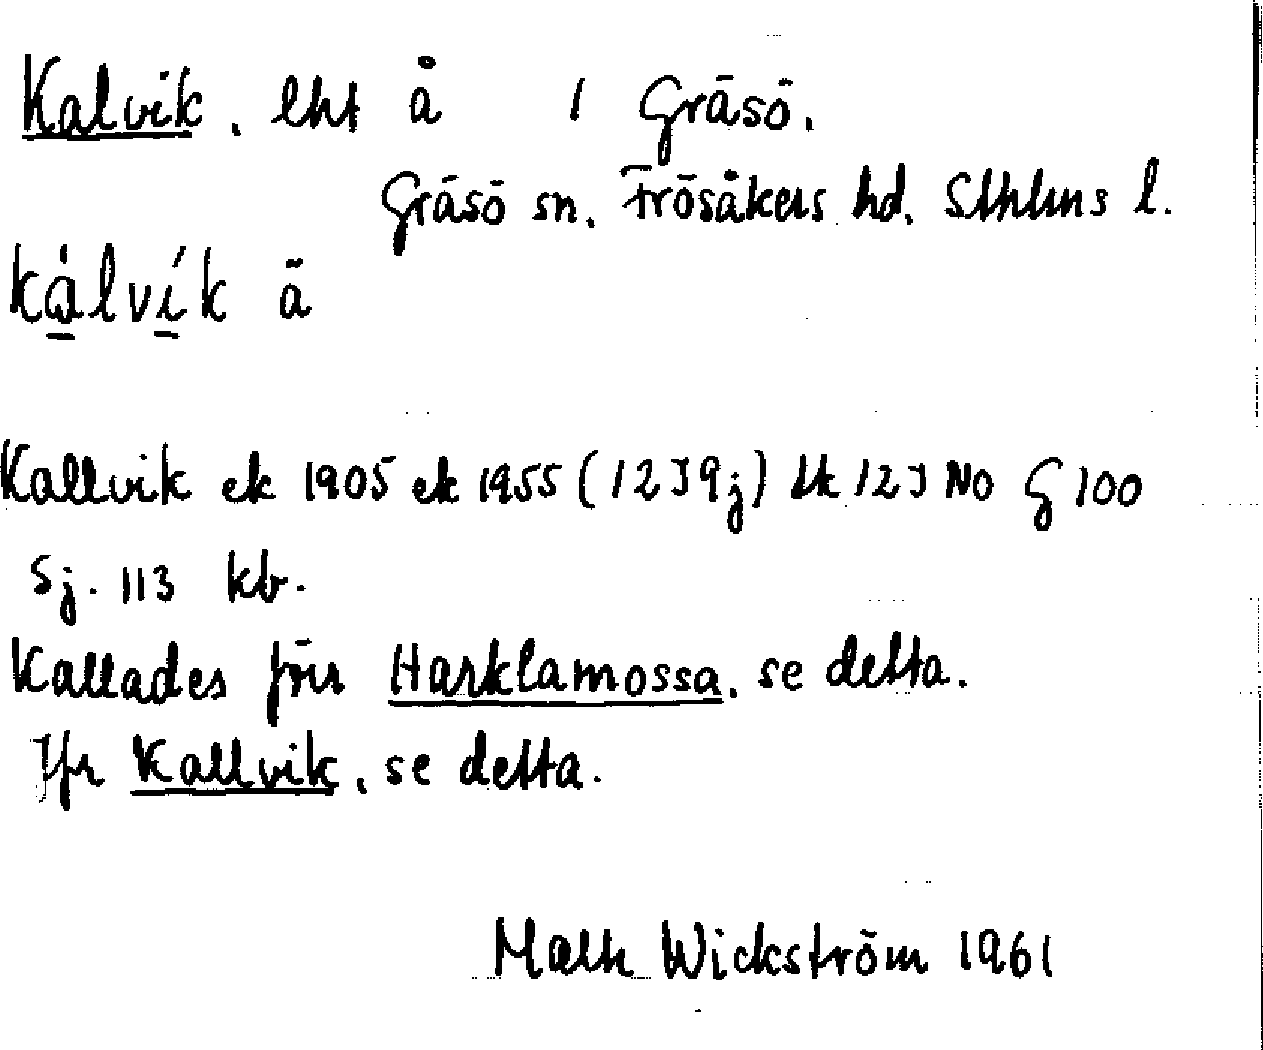 Kalvik, lht å 1 Gräsö.
Gräsö sn. Frösåkers hd. Sthlms l.
kálvík ä
Kallvik ek 1905 ek 1955 (12J9j) lk 12J NO G 100
Sj. 113 kb.
Kallades förr Harklamossa, se detta.
Jfr Kallvik, se detta.
Wickström 1961